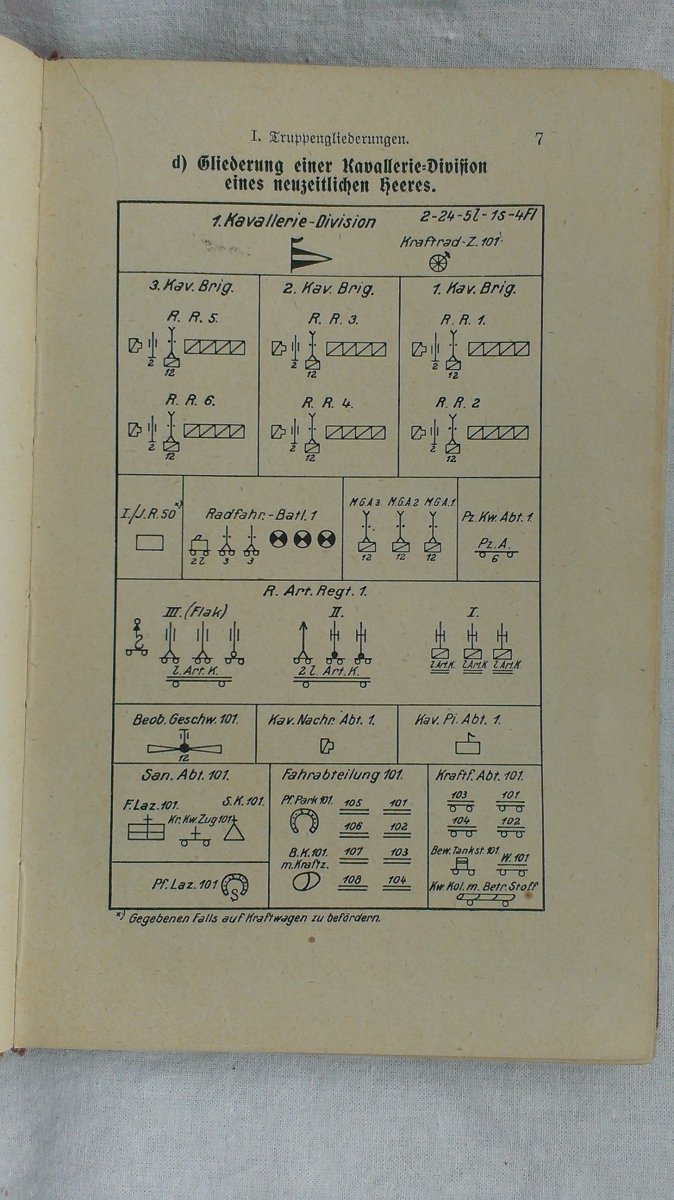 I. Truppengliederungen. 7
d) Gliederung einer Kavallerie-Division
eines neuzeitlichen Heeres.
1. Kavallerie-Division 2-24-5l-1s-4Fl
Kraftrad-Z. 101
3. Kav. Brig. 2. Kav. Brig. 1. Kav. Brig.
R. R. 5. R. R. 3. R. R. 1.
2 12 2 12 2 12
R. R. 6. R. R. 4. R. R. 2
2 12 2 12 2 12
I./J.R. 50 *) Radfahr.-Batl. 1 M.G.A 3 M.G.A 2 M.G.A. 1 Pz. Kw. Abt. 1.
Pz. A.
2l 3 3 12 12 12 6
R. Art. Regt. 1.
III. (Flak) II. I.
l. Art. K. 2 l. Art. K. l. Art. K l. Art. K l. Art. K.
Beob. Geschw. 101. Kav. Nachr. Abt. 1. Kav. Pi. Abt. 1.
12
San. Abt. 101. Fahrabteilung 101. Kraftf. Abt. 101.
F. Laz. 101. S. K. 101. Pf. Park 101. 105 101 103 101
Kr. Kw. Zug 101 106 102 104 102
B. K. 101. 107 103 Bew. Tankst. 101. W. 101
m. Kraftz.
Pf. Laz. 101 108 104 Kw. Kol. m. Betr. Stoff
*) Gegebenen Falls auf Kraftwagen zu befördern.